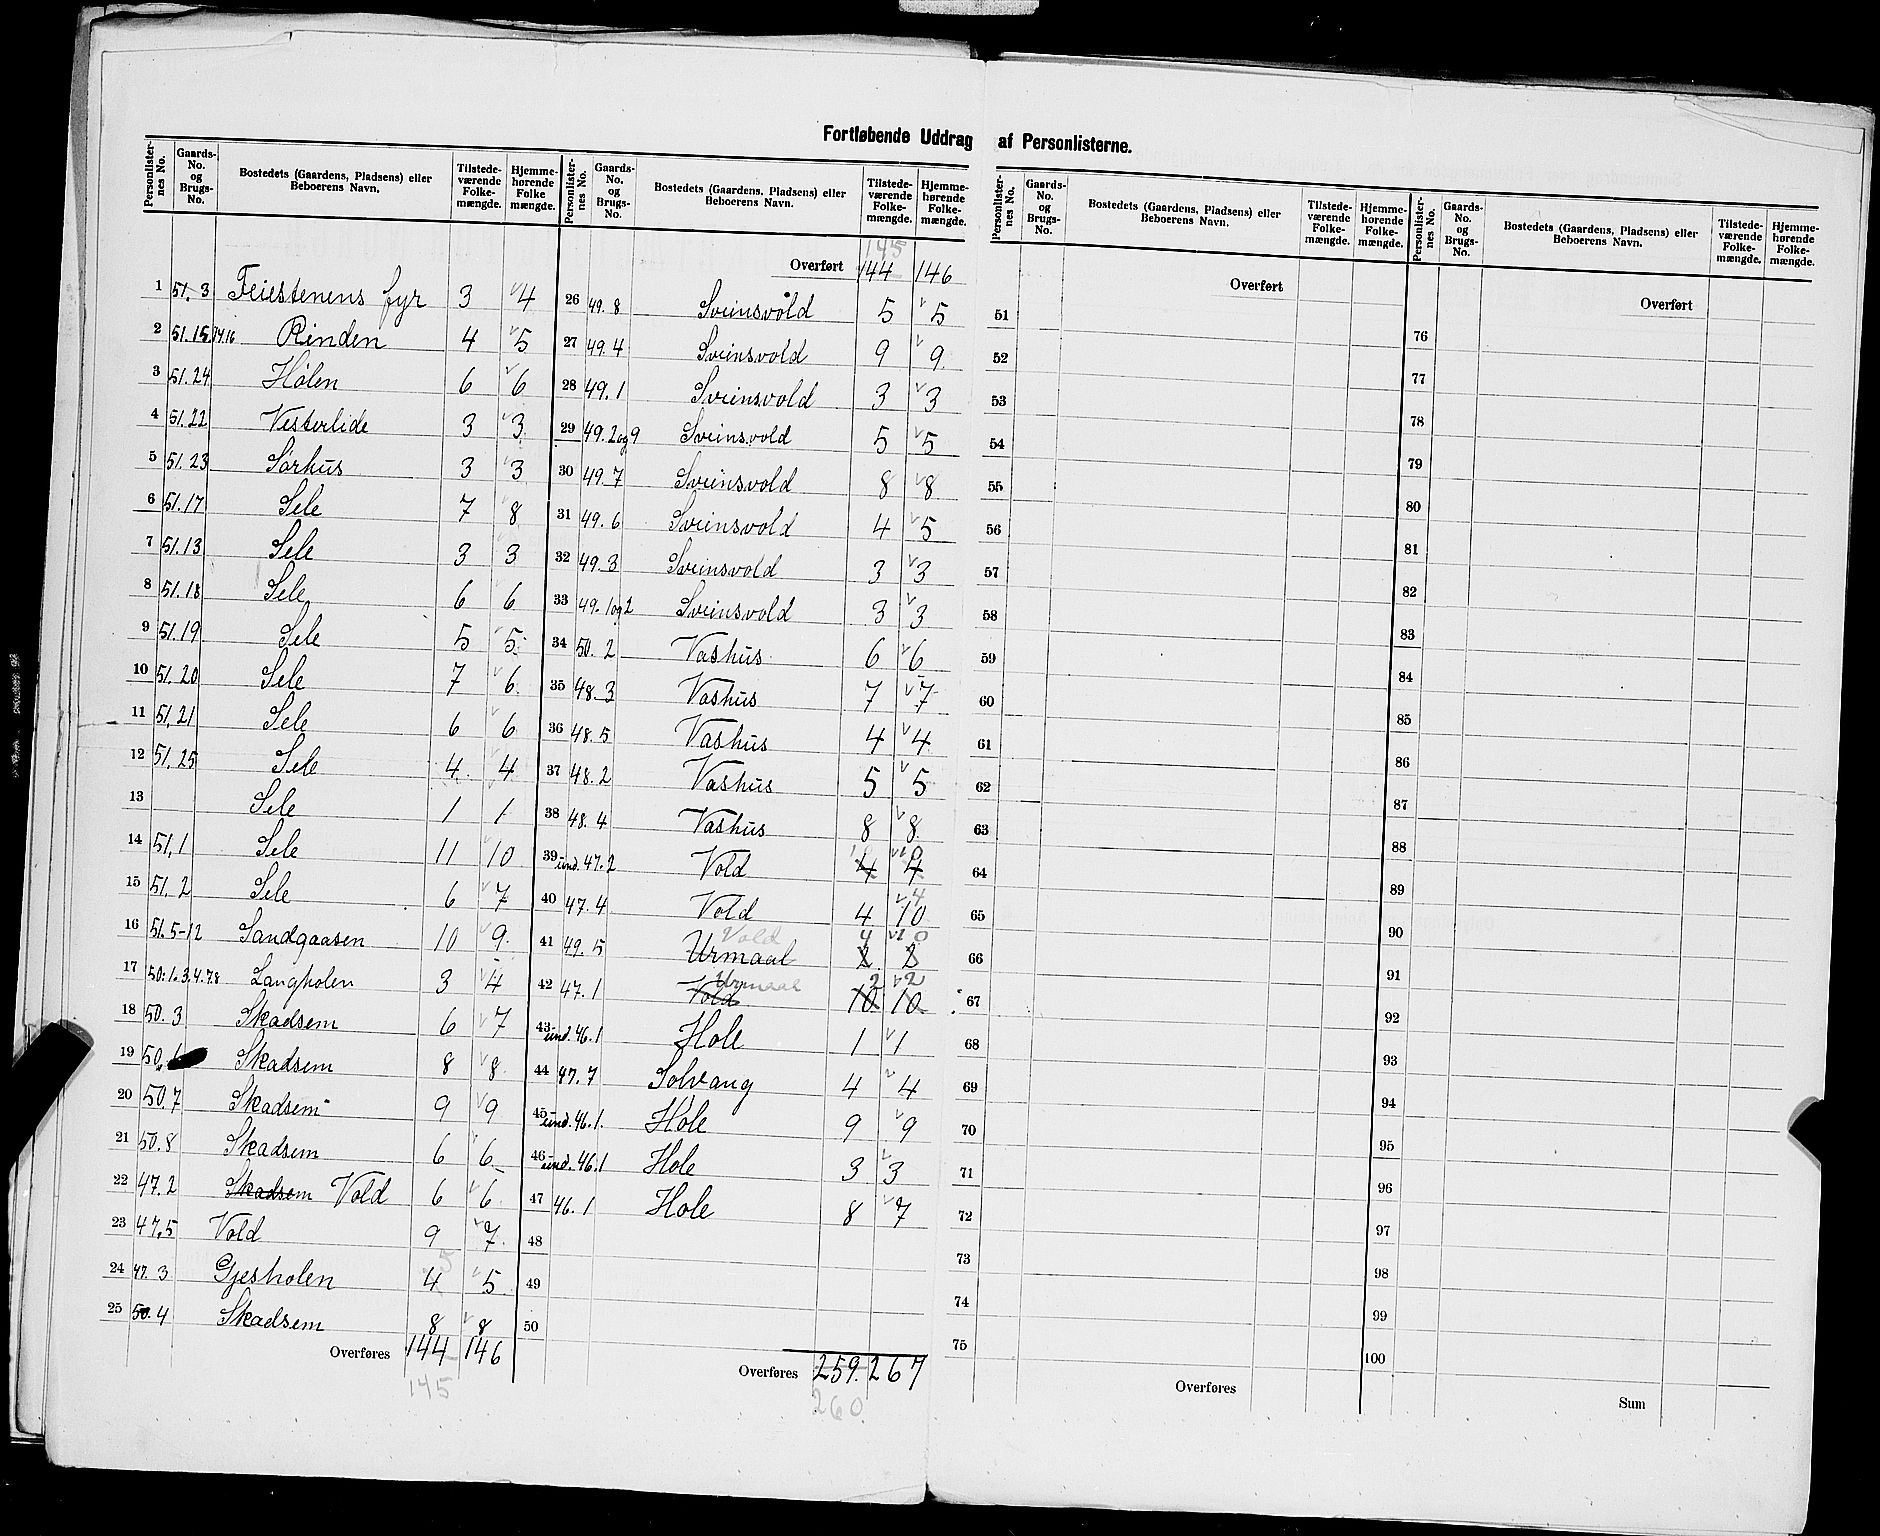 Fortløbende Uddrag af Personlisterne.
Personlister-nes No. Gaards-No. og Brugs-No. Bostedets (Gaardens, Pladsen) eller Beboerens Navn. Tilstede-værende Folke-mængde. Hjemme-hørende Folke mængde.
1 51.3 Feiestenens fyr 3 4
2 51.15.14.16 Rinden 4 5
3 51.24 Hølen 6 6
4 51.22 Vesterlide 3 3
5 51.23 Sørhus 3 3
6 51.17 Sele 7 8
7 51.13 Sele 3 3
8 51.18 Sele 6 6
9 51.19 Sele 5 5
10 51.20 Sele 7 6
11 51.21 Sele 6 6
12 51.25 Sele 4 4
13 Sele 1 1
14 51.1 Sele 11 10
15 51.2 Sele 6 7
16 51.5-12 Sandgaasen 10 9
17 50.1.3.4.7.8 Langholen 3 4
18 50.3 Skadsem 6 7
19 50. Skadsem 8 8
20 50.7 Skadsem 9 9
21 50.8 Skadsem 6 6
22 47.2 Skadsem Vold 6 6
23 47.5 Vold 9 7
24 47.3 Gjesholen 4 5 5
25 50.4 Skadsem 8 8
Overføres 144 146
145
Personlister-nes No. Gaards-No. og Brugs-No. Bostedets (Gaardens, Pladsens) eller Beboerens Navn. Tilstede-værende Folke-mængde. Hjemme-hørende Folke-mængde.
145
Overført 144 146
26 49.8 Sveinsvold 5 5
27 49.4 Sveinsvold 9 9
28 49.1 Sveinsvold 3 3
29 49.2og9 Sveinsvold 5 5
30 49.7 Sveinsvold 8 8
31 49.6 Sveinsvold 4 5
32 49.3 Sveinsvold 3 3
33 49.1og2 Sveinsvold 3 3
34 50.2 Vashus 6 6
35 48.3 Vashus 7 7
36 48.5 Vashus 4 4
37 48.2 Vashus 5 5
38 48.4 Vashus 8 8
10
39 und. 47.2 Vold 4 4
4
40 47.4 Vold 4 10
Vold 4 10
41 49.5 Urmaal 2 2
Urmaal 2 2
42 47.1 Vold 10 10
43 und. 46.1 Hole 1 1
44 47.7 Solvang 4 4
45 und. 46.1. Hole 9 9
46 und. 46.1 Hole 3 3
47 46.1 Hole 8 7
48
49
50
Overføres 259. 267
260
Personlister-nes No. Gaards-No. og Brugs-No. Bostedets (Gaardens, Pladsens) eller Beboerens Navn. Tilstede-værende Folke-mængde. Hjemme-hørende Folke-mængde.
Overført
51
52
53
54
55
56
57
58
59
60
61
62
63
64
65
66
67
68
69
70
71
72
73
74
75
Overføres
Personlister-nes No. Gaards-No. og Brugs-No. Bostedets (Gaardens, Pladsens) eller Beboerens Navn. Tilstede-værende Folke-mængde. Hjemme-hørende Folke-mængde.
Overført
76
77
78
79
80
81
82
83
84
85
86
87
88
89
90
91
92
93
94
95
96
97
98
99
100
Sum